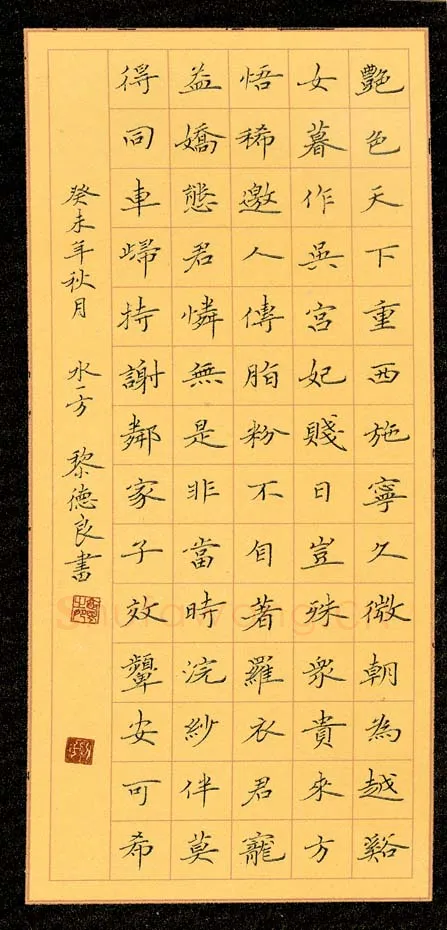 艷色天下重西施寧久微朝為越谿
女暮作吳宮妃賤日豈殊衆貴來方
悟稀邀人傳脂粉不自著羅衣君寵
益嬌態君憐無是非當時浣紗伴莫
得同車歸持謝鄰家子效顰安可希
癸未年秋月 水一方 黎德良書